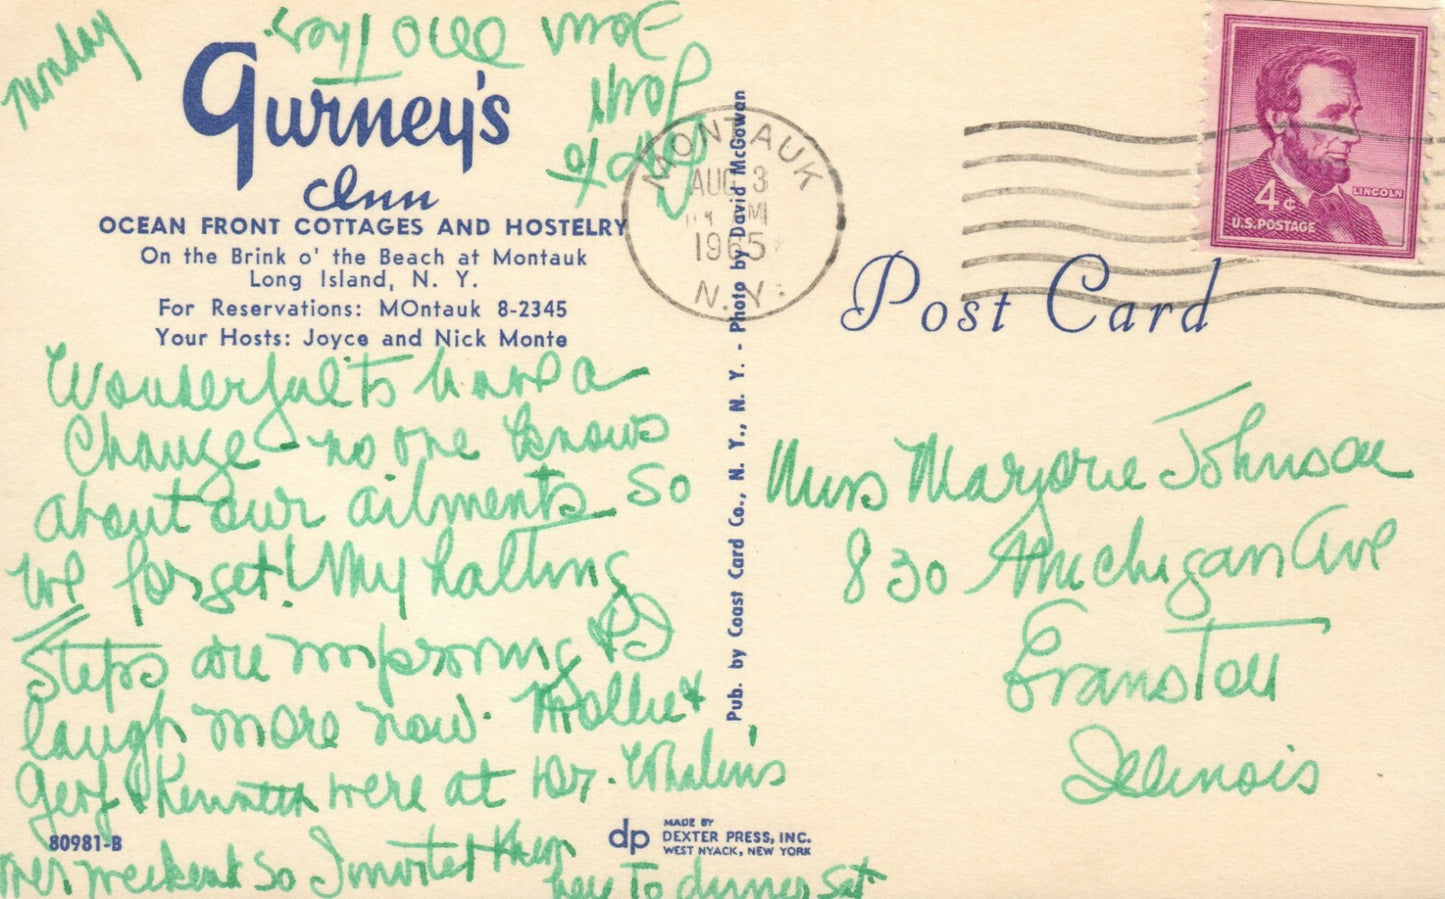 Monday
Gurney's
Inn
OCEAN FRONT COTTAGES AND HOSTELRY
On the Brink o' the Beach at Montauk
Long Island, N. Y.
For Reservations: MOntauk 8-2345
Your Hosts: Joyce and Nick Monte
Wonderful to have a
Change - no one knows
about our ailments so
we forget! My halting
Steps are improving & I
laugh more now. Mollie &
Gerf & Kenneth were at Dr. Whalen's
over weekend so I invited them
here to dinner Sat
80981-B
Pub. by Coast Card Co., N. Y., N. Y. - Photo by David McGowan
dp
MADE BY
DEXTER PRESS, INC.
WEST NYACK, NEW YORK
MONTAUK
AUG 3
PM
1965
N.Y.
4¢
LINCOLN
U.S. POSTAGE
Post Card
Miss Marjorie Johnson
830 Michigan Ave
Evanston
Illinois